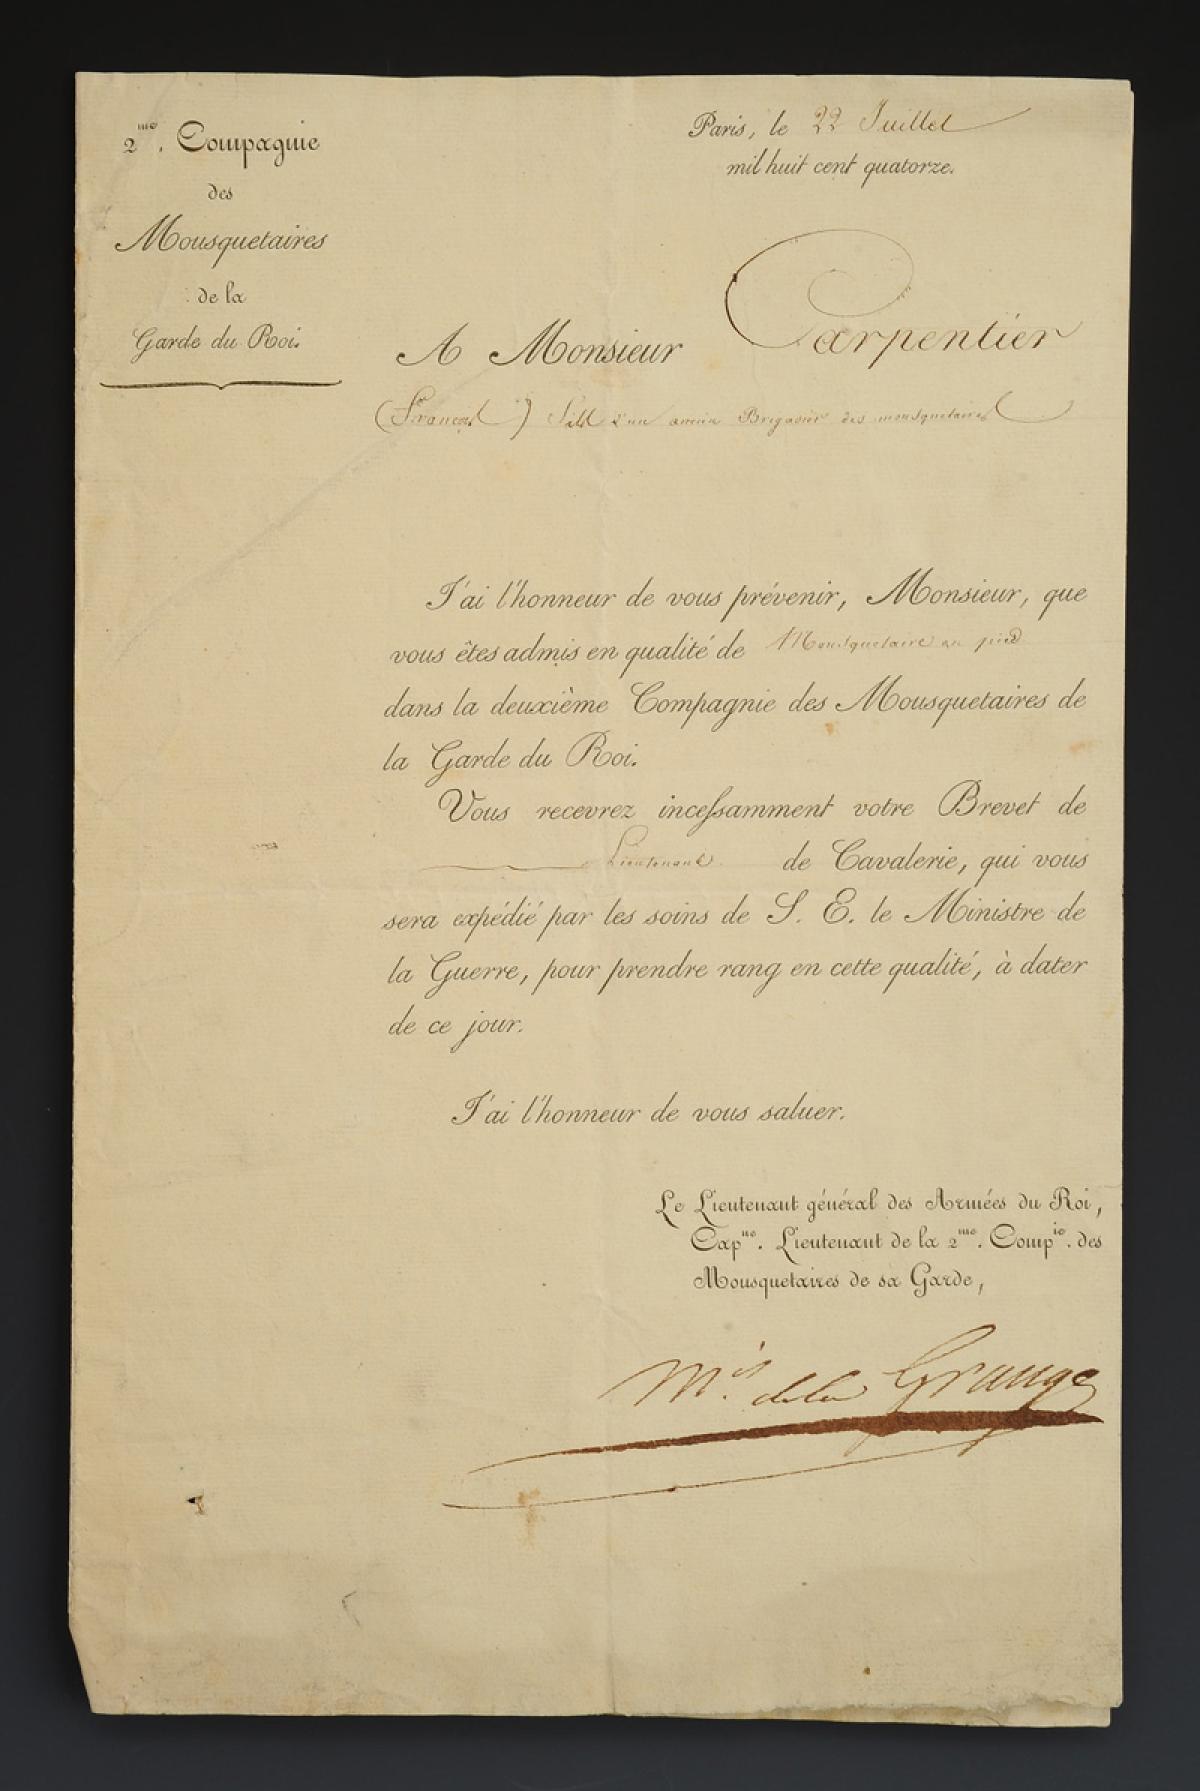 2.me Compagnie
des
Mousquetaires
de la
Garde du Roi.
Paris, le 22 Juillet
mil huit cent quatorze.
A Monsieur Carpentier
(François) fils d'un ancien Brigadier des mousquetaires
J'ai l'honneur de vous prévenir, Monsieur, que
vous êtes admis en qualité de Mousquetaire au pied
dans la deuxième Compagnie des Mousquetaires de
la Garde du Roi.
Vous recevrez inceſsamment votre Brevet de
Lieutenant de Cavalerie, qui vous
sera expédié par les soins de S. E. le Ministre de
la Guerre, pour prendre rang en cette qualité, à dater
de ce jour.
J'ai l'honneur de vous saluer.
Le Lieutenant général des Armées du Roi,
Cap.ne Lieutenant de la 2.me Comp.ie des
Mousquetaires de sa Garde,
M.is de la Grange